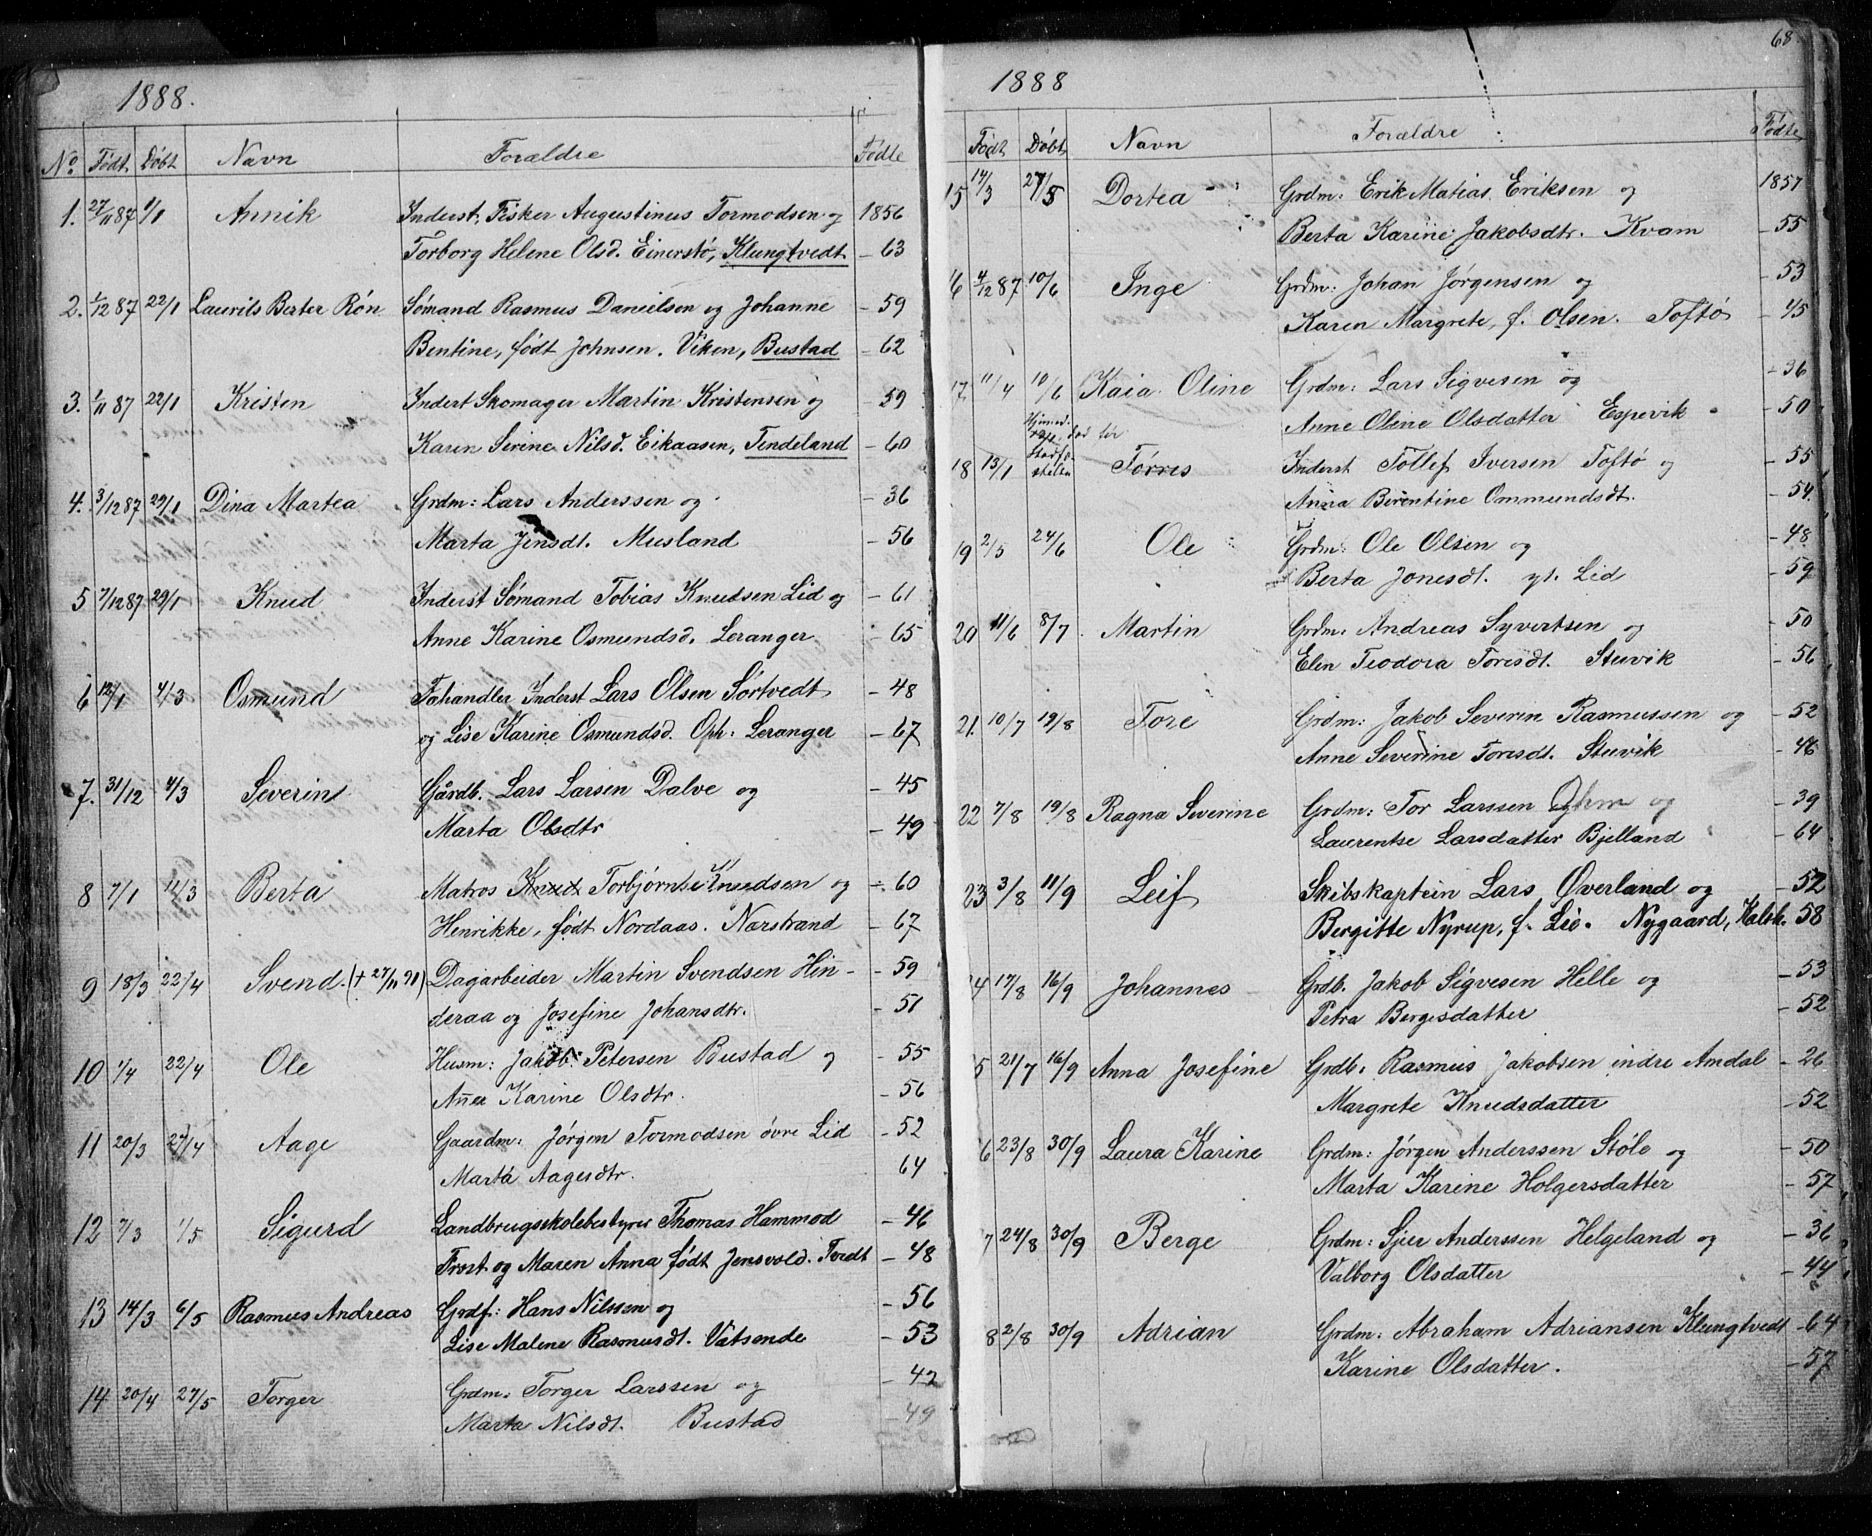 1888.
No. Født Døbt Navn Forældre Fødte
1. 27/11 87 1/1 Annik Inderst. Fisker Augustinus Tormodsen og 1856
Torborg Helene Olsd. Einerstø, Klungtvedt – 63
2. 1/12 87 22/1 Laurits Berter Røn Sømand Rasmus Danielsen og Johanne – 59
Bentine, født Johnsen. Viken, Bustad – 62
3. 1/11 87 22/1 Kristen Inderst Skomager Martin Kristensen og – 59
Karen Serine Nilsd. Eikaasen, Tendeland – 60
4. 3/12 87 29/1 Dina Martea Grdm: Lars Anderssen og – 36
Marta Jensdt. Musland – 56
5 7/12 87 29/1 Knud Inderst Sømand Tobias Knudsen Lid og – 61
Anne Karine Osmundsd. Leranger – 65
6 12/1 4/3 Osmund Fahandler Inderst Lars Olsen Sørtvedt – 48
og Lise Karine Osmundsd. Oph: Leranger – 67
7. 31/12 4/3 Severin Gårdb. Lars Larsen Dalve og – 45
Marta Olsdtr – 49
8 7/1 11/3 Berta Matros Knud Torbjørnse Knudsen og – 60
Henrikke, født Nordaas. Narstrand – 67
9 18/3 22/4 Svend. (+ 27/11 90) Dagarbeider Martin Svendsen Hin- – 59
deraa og Josefine Johansdtr. – 51
10 1/4 22/4 Ole Husm: Jakob Petersen Bustad og – 55
Anna Karine Olsdtr. – 56
11 20/3 27/4 Aage Gaardm: Jørgen Tormodsen øvre Lid – 52
Marta Aagesdtr. 64
12 7/3 1/5 Sigurd Landbrugsskolebestyrer Thomas Hammod – 46
Trost og Maren Anna født Jensvold. Tvedt – 48
13 14/3 6/5 Rasmus Andreas Grdf: Hans Nilssen og – 56
Lise Malene Rasmusdt. Vatsende – 53
14 20/4 27/5 Torger Grdm: Torger Larssen og – 42
Marta Nilsdt. Bustad – 49
68
1888
Født Døbt Navn Forældre Fødte
15 14/3 27/5 Dortea Grdm: Erik Matias Eriksen og 1857
Berta Karine Jakobsdtr. Kvam – 55
16 4/12 87 10/6 Inge Grdm: Johan Jørgensen og – 53
Karen Margrete, f. Olsen. Toftø – 45
17. 11/4 10/6 Kaia Oline Grdm: Lars Sigvesen og – 36
Anne Oline Olsdatter Espevik – 50
18 13/1 Hjemd. død før Stadfæstelse Tørres Inderst Tollef Iversen Toftø og – 55
Anna Berentine Ommundsdt. – 54
19 2/5 24/6 Ole Grdm: Ole Olsen og – 48
Berta Jonesdt. yt. Lid – 59
20 11/6 8/7 Martin Grdm: Andreas Syvertsen og – 50
Elen Teodora Toresdt. Stuvik – 56
21. 10/7 19/8 Tore Grdm: Jakob Severin Rasmussen og – 52
Anne Severine Toresdt. Stuvik – 46
22 7/8 19/8 Ragna Severine Grdm: Tor Larssen og – 39
Laurentse Larsdatter Bjelland – 64
23 3/8 11/9 Leif Skibskaptein Lars Øverland og – 52
Bergitte Nyrup, f. Lie. Nygaard, Halsn. 58
4 17/8 16/9 Johannes Grdb. Jakob Sigvesen Helle og – 53
Petra Bergesdatter – 52
5 21/7 16/9 Anna Josefine Grdb. Rasmus Jakobsen indre Amdal – 26
Margrete Knudsdatter – 52
6 23/8 30/9 Laura Karine Grdm: Jørgen Anderssen Støle og – 50
Marta Karine Holgersdatter – 57
7 24/8 30/9 Berge Grdm: Sjur Anderssen Helgeland og – 36
Valborg Olsdatter – 44
8 2/8 30/9 Adrian Grdm: Abraham Adriansen Klungtvedt – 64
Karine Olsdatter. – 57